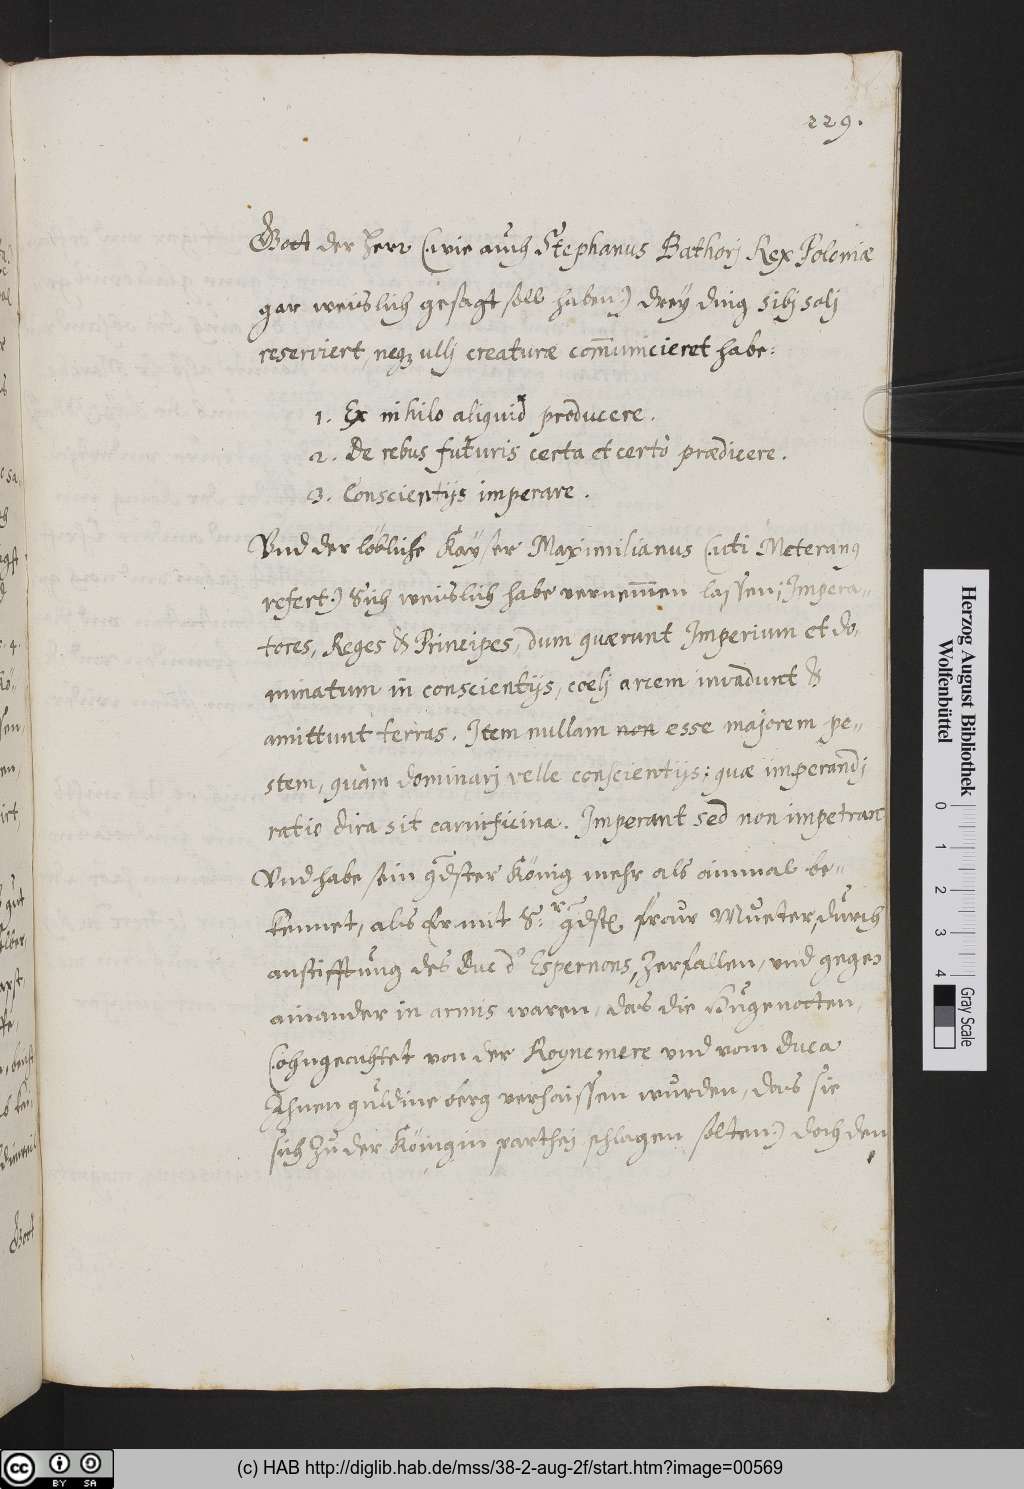 229.
Gott der Herr (:wie auch Stephanus Bathorj Rex Poloniæ
gar weislich gesagt soll haben:) drey ding sibj solj
reserviert, neqꝫ ullj creaturæ com̄unicieret habe:
1. Ex nihilo aliquid producere.
2. De rebus futuris certa et certò prædicere.
3. Conscientijs imperare.
Vnd der löbliche Kayser Maximilianus (:uti Meteranus
refert:) Sich weislich habe vernem̄en lassen; Impera-
tores, Reges & Principes, dum quærunt Imperium et do-
minatum in conscientijs, coelj arcem invadunt &
amittunt terras. Item nullam non esse majorem pe-
stem, quàm dominarj velle conscientijs; quæ imperandj
ratio dira sit carnificina. Imperant sed non impetrant
Vnd habe sein gdster König mehr als ainmal be-
kennet, als Er mit Sr. gdste frawr Mueter, durch
anstifftung des Duc d'Espernons, Zerfallen, und gegen
ainander in armis waren, das die Hugenotten,
(:ohngeachtet von der Royne mere und vom Duca
Ihnen guldine berg verhaissen wurden, das sie
sich Zu der Königin parthej schlagen solten:) doch den
Gott
Herzog August Bibliothek
Wolfenbüttel
0 1 2 3 4
Gray Scale
cc BY SA
(c) HAB http://diglib.hab.de/mss/38-2-aug-2f/start.htm?image=00569